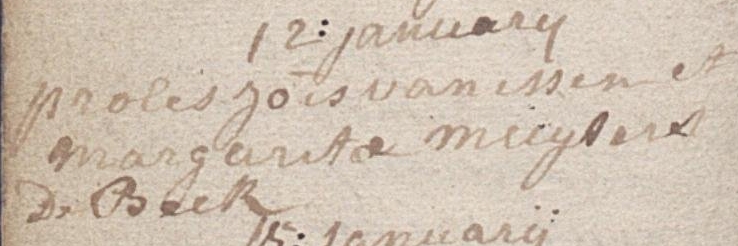 12: january
proles jois van essen et
margaritæ muysers
De Beek
15: januarij